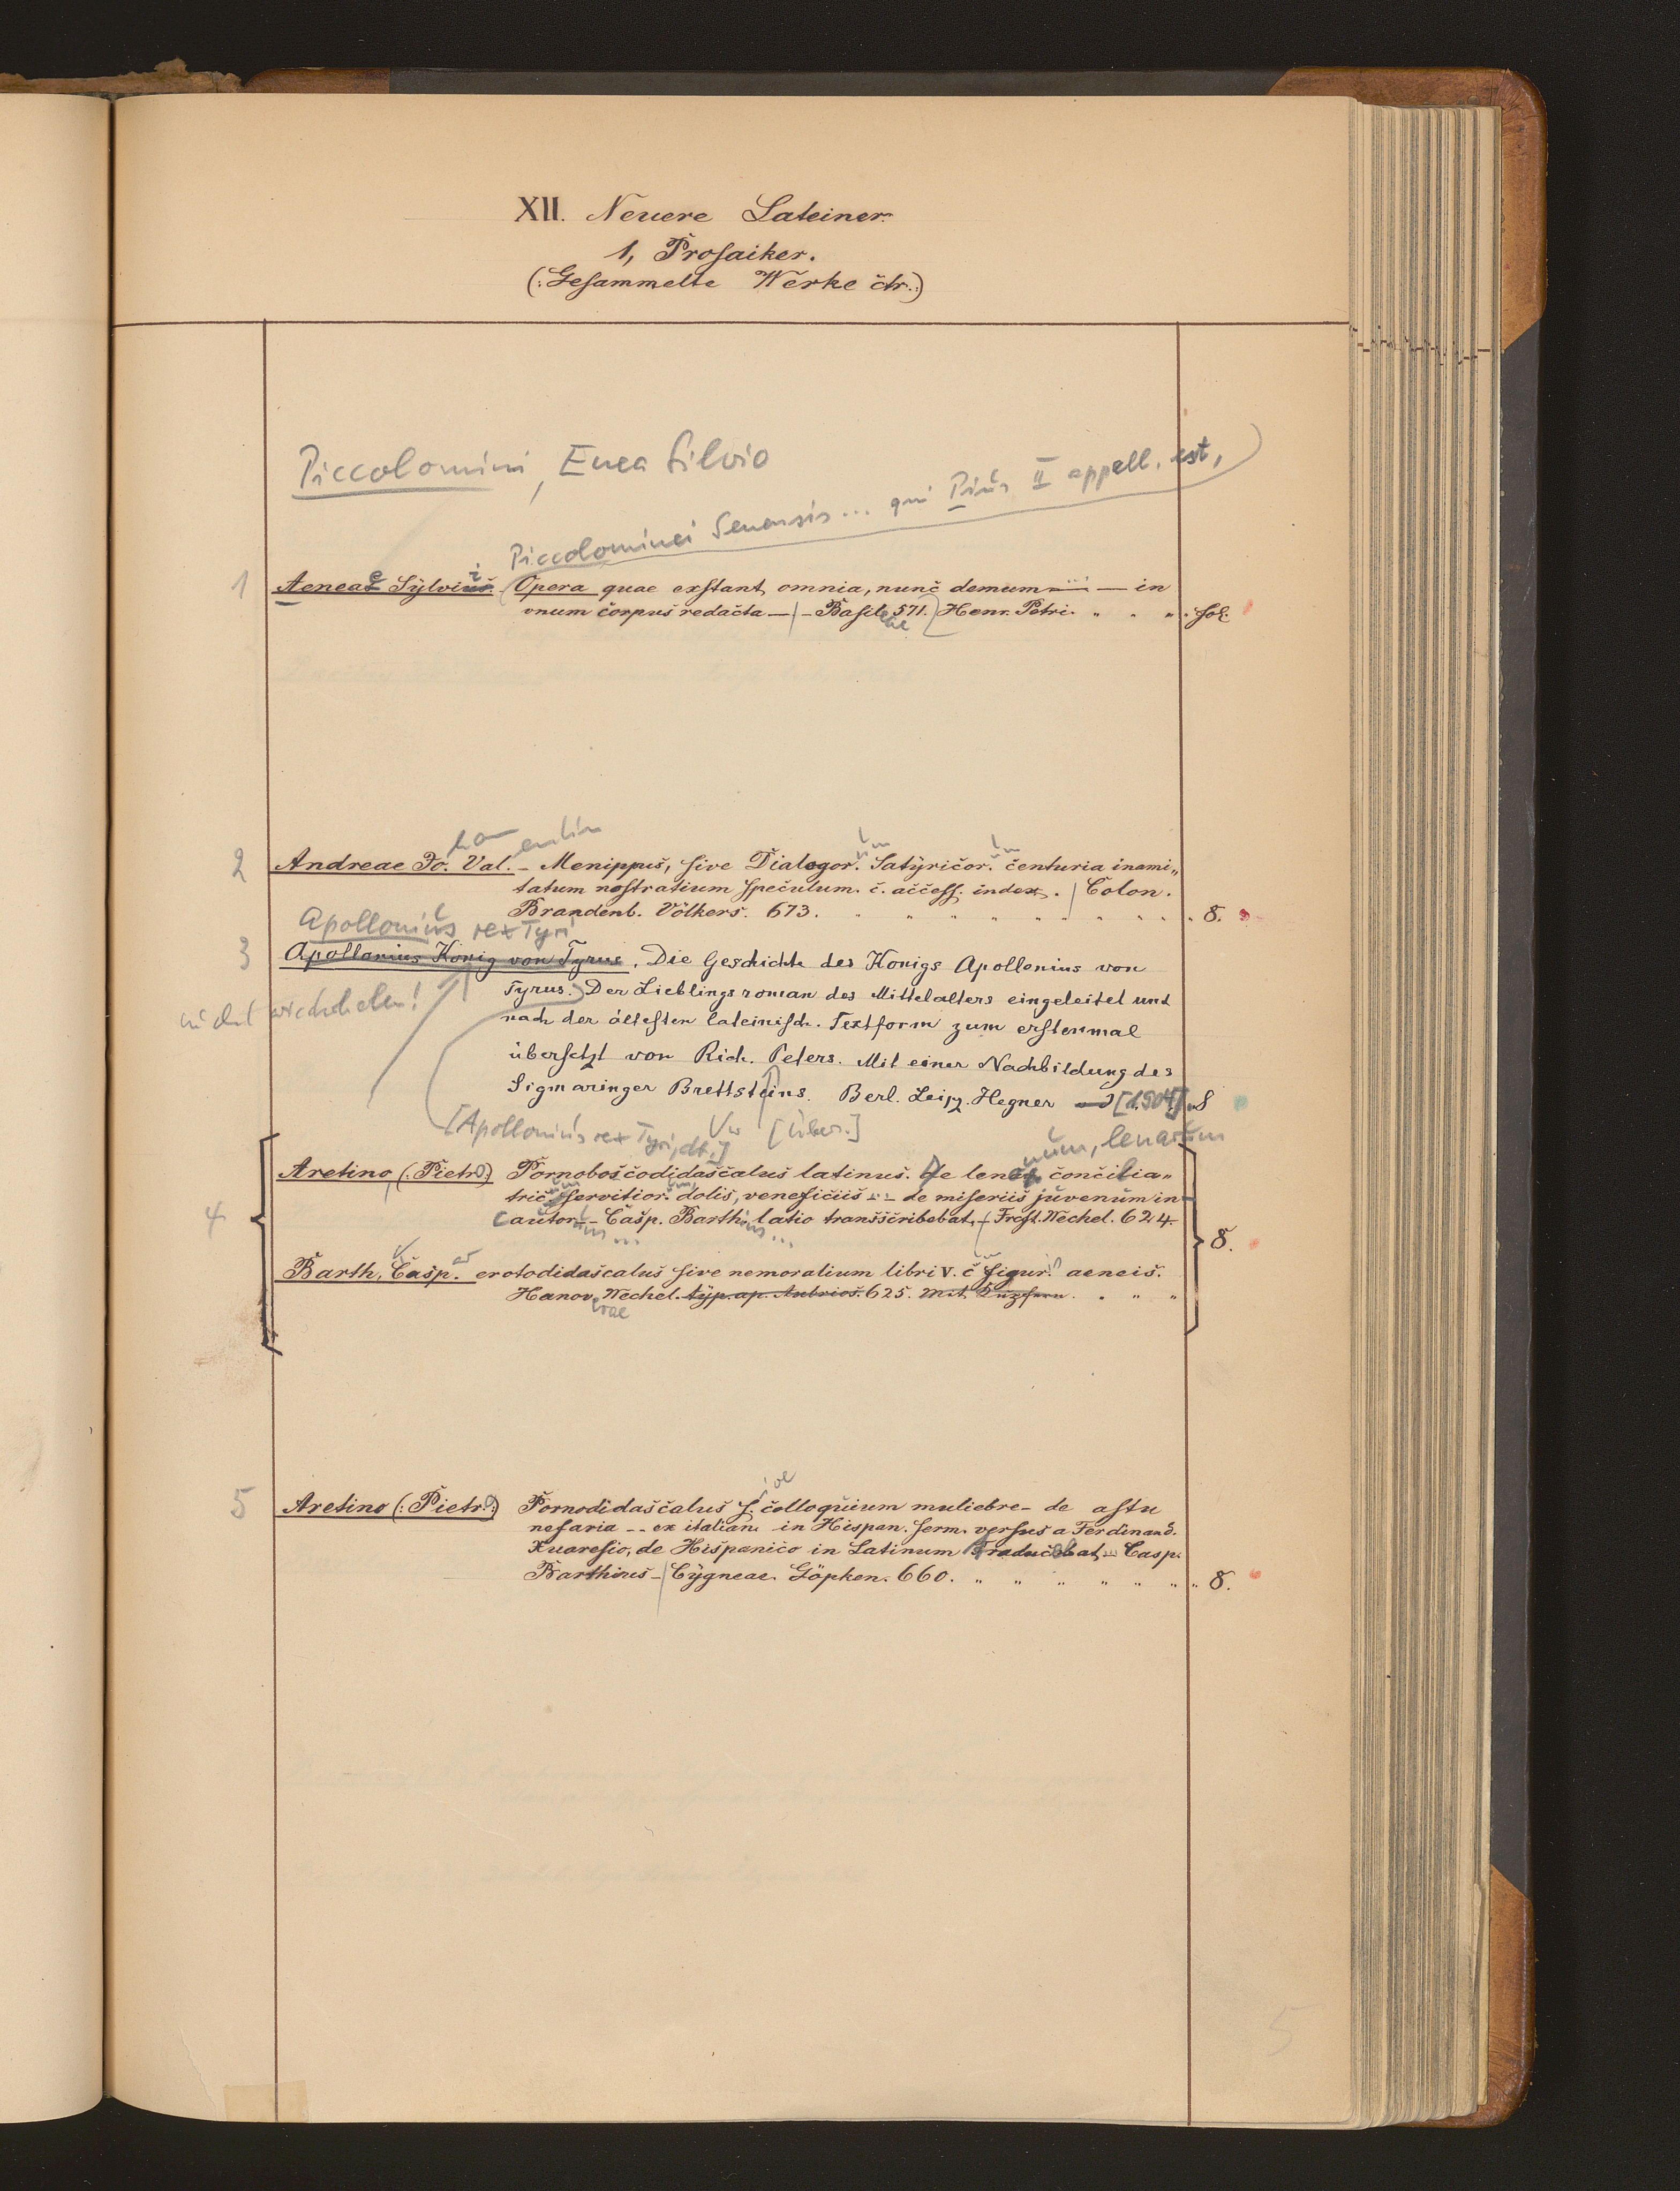 XII. Neuere Lateiner.
1, Prosaiker.
(: Gesammelte Werke etr.:)
Piccolomini, Enea Silvio
Piccolominei Senensis ... qui Pius II appell. est,
1 Aeneas Sylvius. Opera quae exstant omnia, nunc demum — in
vnum corpus redacta — Basil. 571. Henr. Petri. " " " fol.
eae
han entin
2 Andreae Jo. Val. - Menippus, sive Dialogor. Satyricor. centuria inami„
tatum nostratium speculum. c. access. index. Colon.
Brandenb. Völkers. 673. 8.
Apollonius rex Tyri
3 Apollonius König von Tyrus. Die Geschichte des Königs Apollonius von
Tyrus. Der Lieblingsroman des Mittelalters eingeleitet und
nicht wiederholen!
nach der ältesten lateinisch. Textform zum erstenmal
übersetzt von Rich. Peters. Mit einer Nachbildung des
Sigmaringer Brettsteins. Berl. Leipz. Hegner [1904] 8
[Apollonius rex Tyri, dt.] Vw [Über.]
num, lenarum
4 Aretino, (: Pietro:) Pornoboscodidascalus latinus. De lenon. concilia„
tric. servitior. dolis, veneficiis - - de miseriis juvenum in
cautor. - Casp. Barth. latio transscribebat. - Frcft. Wechel. 624.
ius ...
8.
Barth, Casp. erotodidascalus sive nemoralium libri V. c figur. aeneis.
Hanov. Wechel. typ. ap. Aubrios. 625. " "
ovae
ive
5 Aretino (: Pietro:) Pornodidascalus s. colloquium muliebre - de astu
nefario - - ex italian. in Hispan. serm. versus a Ferdinand.
Xuaresio, de Hispanico in Latinum traducebat - Casp.
Barthius - Cygneae. Göpken. 660. " " " " " " 8.
5